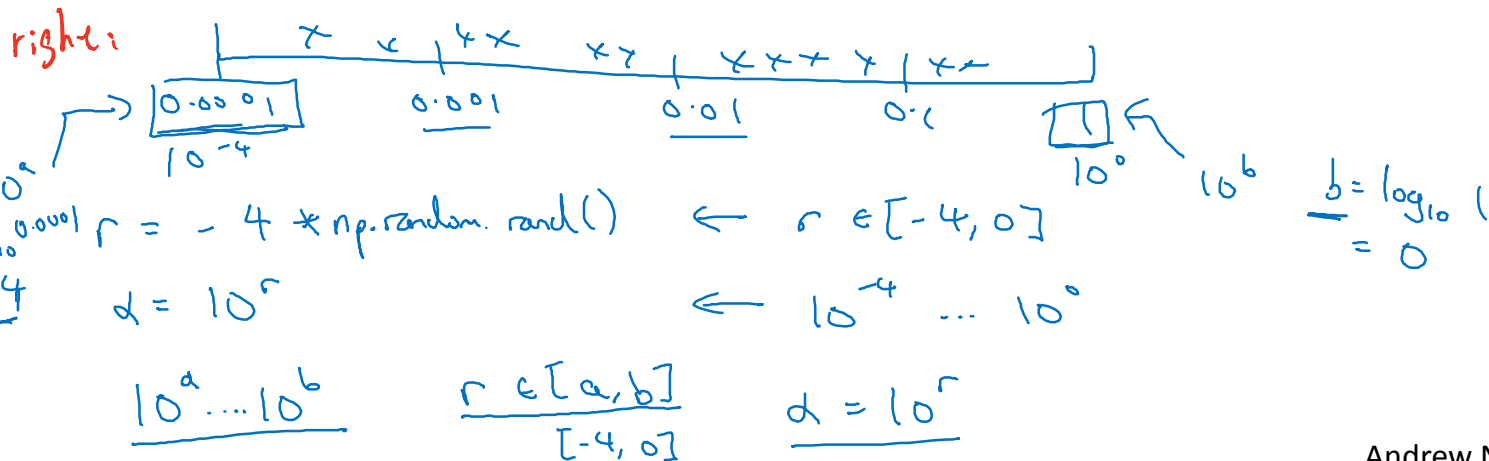 right:
0.0001 0.001 0.01 0.1 1
10^-4 10^0 10^b b = log10 (
= 0
0.0001 r = -4 * np.random.rand() ← r ∈ [-4, 0]
4 α = 10^r ← 10^-4 ... 10^0
10^a .... 10^b r ∈ [a, b] α = 10^r
[-4, 0]
Andrew N